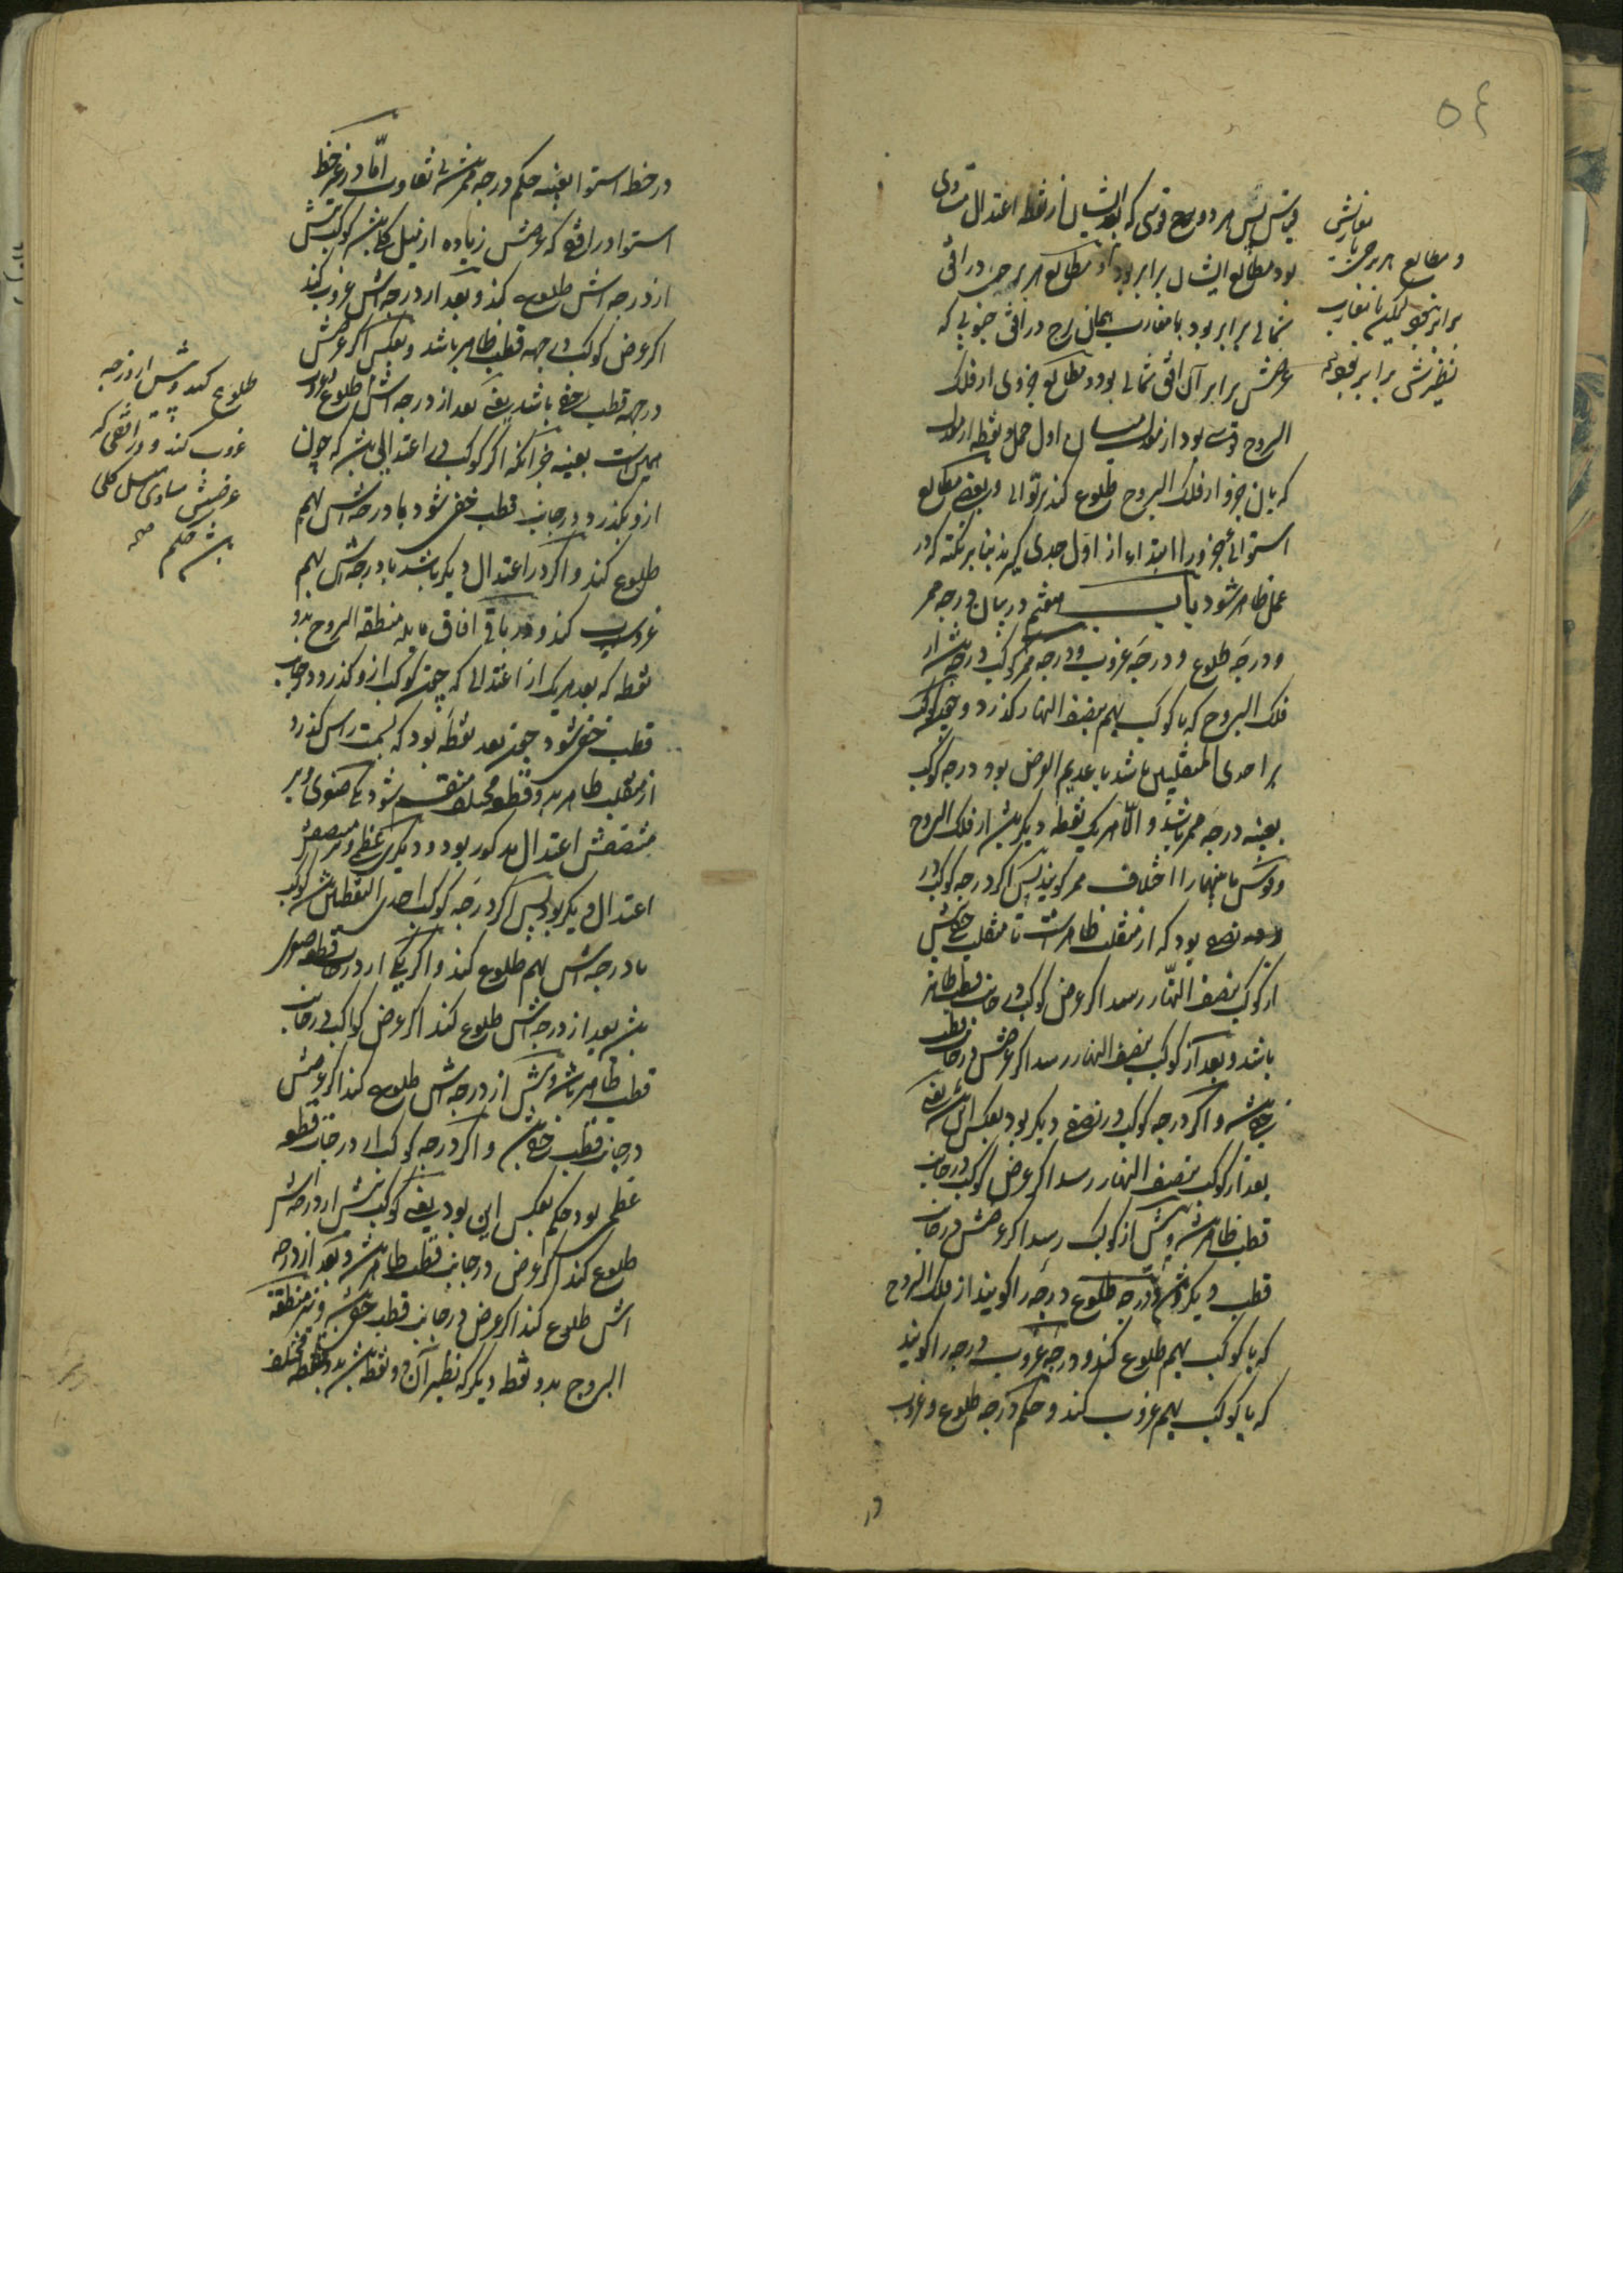 ۵۴
قوس پس هر دو قوسی که بعد ایشان از نقطه اعتدال متساوی
بود مطالع ایشان برابر بود و مطالع هر برجی در افق
شمالی برابر بود با مغارب همان برج در افق جنوبی که
عرضش برابر آن افق شمالی بود و مطالع جزوی از فلک
البروج قوسی بود از میان اول حمل و نقطه از
که با آن جزو از فلک البروج طلوع کند بر توالی و بعضی مطالع
استوائی جزو را ابتداء از اول جدی گیرند بنابر نکته که در
عمل ظاهر شود باب هفتم در بیان درجه ممر
و درجه طلوع و درجه غروب و درجه ممر کوکب درجه باشد از
فلک البروج که با کوکب بهم بنصف النهار گذرد و چون کوکب
بر احدی المنقلبین باشد یا عدیم العرض بود درجه کوکب
بعینه درجه ممر باشد و الا هر یک نقطه دیگر باشد از فلک البروج
و قوس ما بینهما را اختلاف ممر گویند پس اگر درجه کوکب در
نصفی بود که از منقلب ظاهر است تا منقلب خفی پیش
از کوکب بنصف النهار رسد اگر عرض کوکب در جانب قطب ظاهر
باشد و بعد از کوکب بنصف النهار رسد اگر عرضش در جانب قطب
خفی باشد و اگر درجه کوکب در نصف دیگر بود بعکس این باشد یعنی
بعد از کوکب بنصف النهار رسد اگر عرض کوکب در جانب
قطب ظاهر باشد و پیش از کوکب رسد اگر عرضش در جانب
قطب دیگر باشد و درجه طلوع درجه را گویند از فلک البروج
که با کوکب بهم طلوع کند و درجه غروب درجه را گویند
که با کوکب بهم غروب کند و حکم درجه طلوع و غروب
در
و مطالع هر برجی با
برابر نبود لیکن با مغارب
نظیرش برابر بود
در خط استوا بعینه حکم درجه ممر باشد بی تفاوت اما در غیر خط
استوا در افقی که عرضش زیاده از میل کلی باشد کوکب پیش
از درجه اش طلوع کند و بعد از درجه اش غروب کند
اگر عرض کوکب در جهه قطب ظاهر باشد و بعکس اگر عرضش
در جهه قطب خفی باشد یعنی بعد از درجه اش طلوع کند
همین است بعینه جز آنکه اگر کوکب در اعتدالی باشد که چون
ازو بگذرد در جانب قطب خفی شود با درجه اش بهم
طلوع کند و اگر در اعتدال دیگر باشد با درجه اش بهم
غروب کند و در باقی افاق مایله منطقه البروج بدو
نقطه که بعد هر یک از اعتدالی که چون کوکب ازو گذرد در جانب
قطب خفی شود چون بعد نقطه بود که بسمت راس گذرد
از منقلب ظاهر بدو قطعه مختلف منقسم شود یکی صغری و بر
منتصفش اعتدال مذکور بود و دیگری عظمی و بر منتصفش
اعتدال دیگر بود پس اگر درجه کوکب احدی النقطتین باشد کوکب
با درجه اش بهم طلوع کند و اگر یکی از درجات قطعه صغری
باشد بعد از درجه اش طلوع کند اگر عرض کواکب در جانب
قطب ظاهر باشد و پیش از درجه اش طلوع کند اگر عرضش
در جانب قطب خفی باشد و اگر درجه کوکب از درجات قطعه
عظمی بود حکم بعکس این بود یعنی کوکب پیش از درجه اش
طلوع کند اگر عرض در جانب قطب ظاهر باشد و بعد از درجه
اش طلوع کند اگر عرض در جانب قطب خفی باشد و نیز منطقة
البروج بدو نقطه دیگر که نظیر آن دو نقطه باشد بدو قطعه مختلف
طلوع کند و پیش از درجه
غروب کند و در افقی که
عرضش مساوی میل کلی
باشد حکم صح